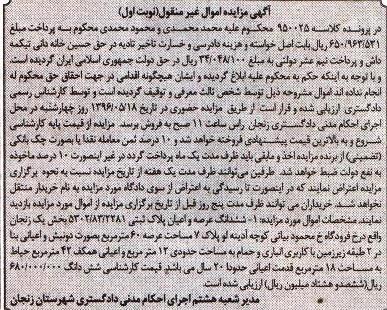 آگهی مزایده اموال غیر منقول(نوبت اول)
در پرونده کلاسه ۹۵۰۰۲۵ محکوم علیه محمد محمدی و محمود محمدی محکوم به پرداخت مبلغ
۶۵۰/۹۶۳/۵۳۱ ریال بابت اصل خواسته و هزینه دادرسی و خسارت تاخیر تادیه در حق حسین خانه دانی تیکمه
داش و پرداخت نیم عشر دولتی به مبلغ ۳۴/۰۴۸/۱۰۰ ریال در حق دولت جمهوری اسلامی ایران گردیده است.
و با توجه به اینکه حکم به محکوم علیه ابلاغ گردیده و ایشان هیچگونه اقدامی در جهت احقاق حق محکوم له
انجام نداده اند اموال مشروحه ذیل توسط شخص ثالث معرفی و توقیف گردیده است و توسط کارشناس رسمی
دادگستری ارزیابی شده و قرار است از طریق مزایده حضوری در تاریخ ۱۳۹۶/۰۵/۱۸ روز چهارشنبه در محل
اجرای احکام مدنی دادگستری زنجان راس ساعت ۱۱ صبح به فروش برسد. مزایده از قیمت پایه کارشناسی
شروع و به بالاترین قیمت پیشنهادی فروخته خواهد شد و ۱۰ درصد ثمن معامله نقدا یا بصورت چک بانکی
(تضمینی) از برنده مزایده اخذ و مابقی باید ظرف مدت یک ماه پرداخت گردد در غیر اینصورت ۱۰ درصد ماخوذه
به نفع دولت ضبط خواهد شد. طرفین می توانند ظرف مدت یک هفته از تاریخ مزایده نسبت به نحوه برگزاری
مزایده اعتراض نمایند که در اینصورت تا رسیدگی به اعتراض از سوی دادگاه مورد مزایده به نام خریدار منتقل
نخواهد شد. خریداران می توانند ظرف مدت پنج روز قبل از تاریخ برگزاری مزایده از اموال مورد مزایده بازدید
نمایند. مشخصات اموال مورد مزایده: ۱- ششدانگ عرصه و اعیان پلاک ثبتی ۵۳۰۲/۸۳/۲۲۸۱ بخش یک زنجان
واقع در خ فرودگاه خ محمود بیانی کوچه آدینه لو پلاک ۷ مساحت عرصه ۶۰ مترمربع بصورت دونبش و اعیانی بنا
در ۲ طبقه زیرزمین با کاربری انباری و حمام به مساحت حدودی ۱۲ متر مربع و اعیانی همکف ۴۲ مترمربع حیاط
به مساحت ۱۸ مترمربع قدمت اعیانی حدودا ۲۰ سال می باشد. قیمت کارشناسی شش دانگ ۶۸۰/۰۰۰/۰۰۰
ریال (ششصدو هشتاد میلیون ریال) ارزیابی شده است.
مدیر شعبه هشتم اجرای احکام مدنی دادگستری شهرستان زنجان